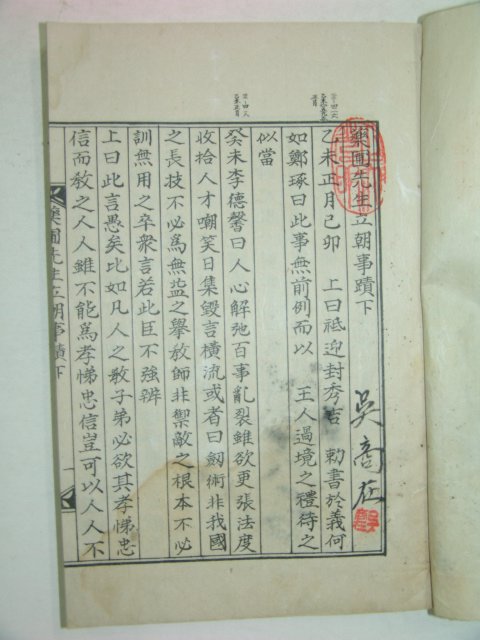 藥圃先生立朝事蹟下
乙未正月己卯 上曰祗迎封秀吉 勅書於義何
如鄭琢曰此事無前例而以 王人過境之禮待之
似當
癸未李德馨曰人心解弛百事亂裂雖欲更張法度
收拾人才嘲笑日集毀言橫流或者曰劒術非我國
之長技不必爲無益之擧敎師非禦敵之根本不必
訓無用之卒衆言若此臣不強辨
上曰此言愚矣比如凡人之敎子弟必欲其孝悌忠
信而敎之人人雖不能爲孝悌忠信豈可以人人不
藥圃先生立朝事蹟下
一